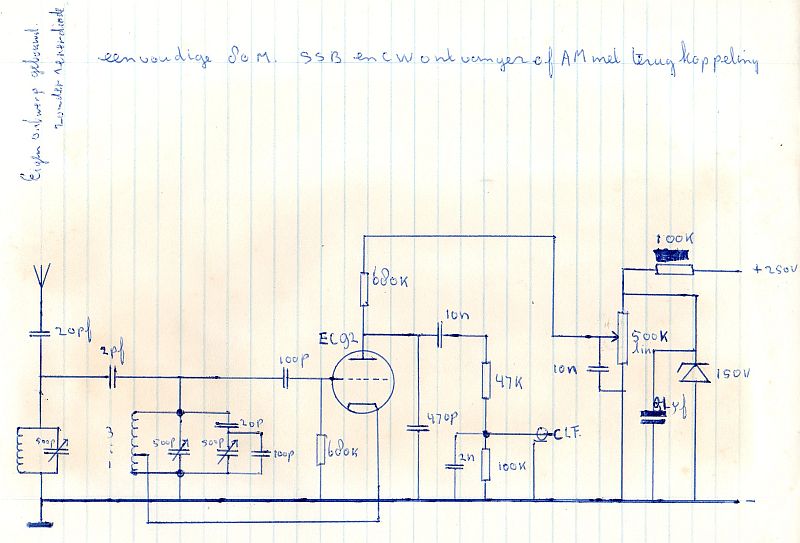 eenvoudige 80 M. SSB en CW ontvanger of AM met terugkoppeling
Eigen ontwerp gebouwd
zonder zenerdiode
100K
+250V
680K
20pf
10n
EC92
2pf
100p
500K
lin
10n
47K
150V
470p
20p
500p
500p
100p
680K
2n
100K
CLF.
-